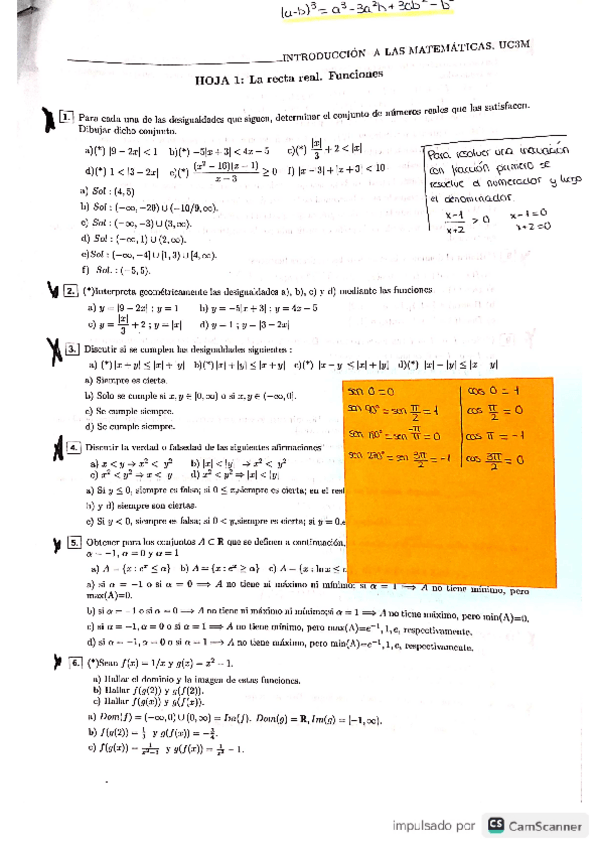 (a-b)³ = a³ - 3a²b + 3ab² - b³
INTRODUCCIÓN A LAS MATEMÁTICAS. UC3M
HOJA 1: La recta real. Funciones
1. Para cada una de las desigualdades que siguen, determinar el conjunto de números reales que las satisfacen.
Dibujar dicho conjunto.
a)(*) |9 − 2x| < 1 b)(*) −5|x + 3| < 4x − 5 c)(*) |x|/3 + 2 < |x|
d)(*) 1 < |3 − 2x| e)(*) (x² − 16)(x − 1)/(x − 3) ≥ 0 f) |x − 3| + |x + 3| < 10
a) Sol : (4, 5)
b) Sol : (−∞, −20) ∪ (−10/9, ∞).
c) Sol : (−∞, −3) ∪ (3, ∞).
d) Sol : (−∞, 1) ∪ (2, ∞).
e) Sol : (−∞, −4] ∪ [1, 3) ∪ [4, ∞).
f) Sol. : (−5, 5).
Para resolver una inecuación
con fracción primero se
resuelve el numerador y luego
el denominador.
x-1/x+2 > 0 x-1=0
x+2=0
2. (*)Interpreta geométricamente las desigualdades a), b), c) y d) mediante las funciones
a) y = |9 − 2x| ; y = 1 b) y = −5|x + 3| ; y = 4x − 5
c) y = |x|/3 + 2 ; y = |x| d) y = 1 ; y = |3 − 2x|
3. Discutir si se cumplen las desigualdades siguientes :
a) (*) |x + y| ≤ |x| + |y| b)(*) |x| + |y| ≤ |x + y| c)(*) |x − y| ≤ |x| + |y| d)(*) |x| − |y| ≤ |x − y|
a) Siempre es cierta.
b) Solo se cumple si x, y ∈ [0, ∞) o si x, y ∈ (−∞, 0].
c) Se cumple siempre.
d) Se cumple siempre.
sen 0 = 0 cos 0 = 1
sen 90° = sen π/2 = 1 cos π/2 = 0
sen 180° = sen π = 0 cos π = -1
sen 270° = sen 3π/2 = -1 cos 3π/2 = 0
4. Discutir la verdad o falsedad de las siguientes afirmaciones
a) x < y → x² < y² b) |x| < |y| → x² < y²
c) x² < y² → x < y d) x² < y² → |x| < |y|
a) Si y ≤ 0, siempre es falsa; si 0 ≤ x, siempre es cierta; en el
b) y d) siempre son ciertas.
c) Si y < 0, siempre es falsa; si 0 < y, siempre es cierta; si y = 0,
5. Obtener para los conjuntos A ⊂ ℝ que se definen a continuación,
α = −1, α = 0 y α = 1
a) A = {x : eˣ ≤ α} b) A = {x : eˣ ≥ α} c) A = {x : ln x ≤
a) si α = −1 o si α = 0 ⟹ A no tiene ni máximo ni mínimo; si α = 1 ⟹ A no tiene mínimo, pero
max(A)=0.
b) si α = −1 o si α = 0 ⟹ A no tiene ni máximo ni mínimo; si α = 1 ⟹ A no tiene máximo, pero min(A)=0.
c) si α = −1, α = 0 o si α = 1 ⟹ A no tiene mínimo, pero max(A)=e⁻¹, 1, e, respectivamente.
d) si α = −1, α = 0 o si α = 1 ⟹ A no tiene máximo, pero min(A)=e⁻¹, 1, e, respectivamente.
6. (*)Sean f(x) = 1/x y g(x) = x² − 1.
a) Hallar el dominio y la imagen de estas funciones.
b) Hallar f(g(2)) y g(f(2)).
c) Hallar f(g(x)) y g(f(x)).
a) Dom(f) = (−∞, 0) ∪ (0, ∞) = Im(f). Dom(g) = ℝ, Im(g) = [−1, ∞).
b) f(g(2)) = 1/3 y g(f(x)) = −3/4.
c) f(g(x)) = 1/(x²−1) y g(f(x)) = 1/x² − 1.
impulsado por CS CamScanner